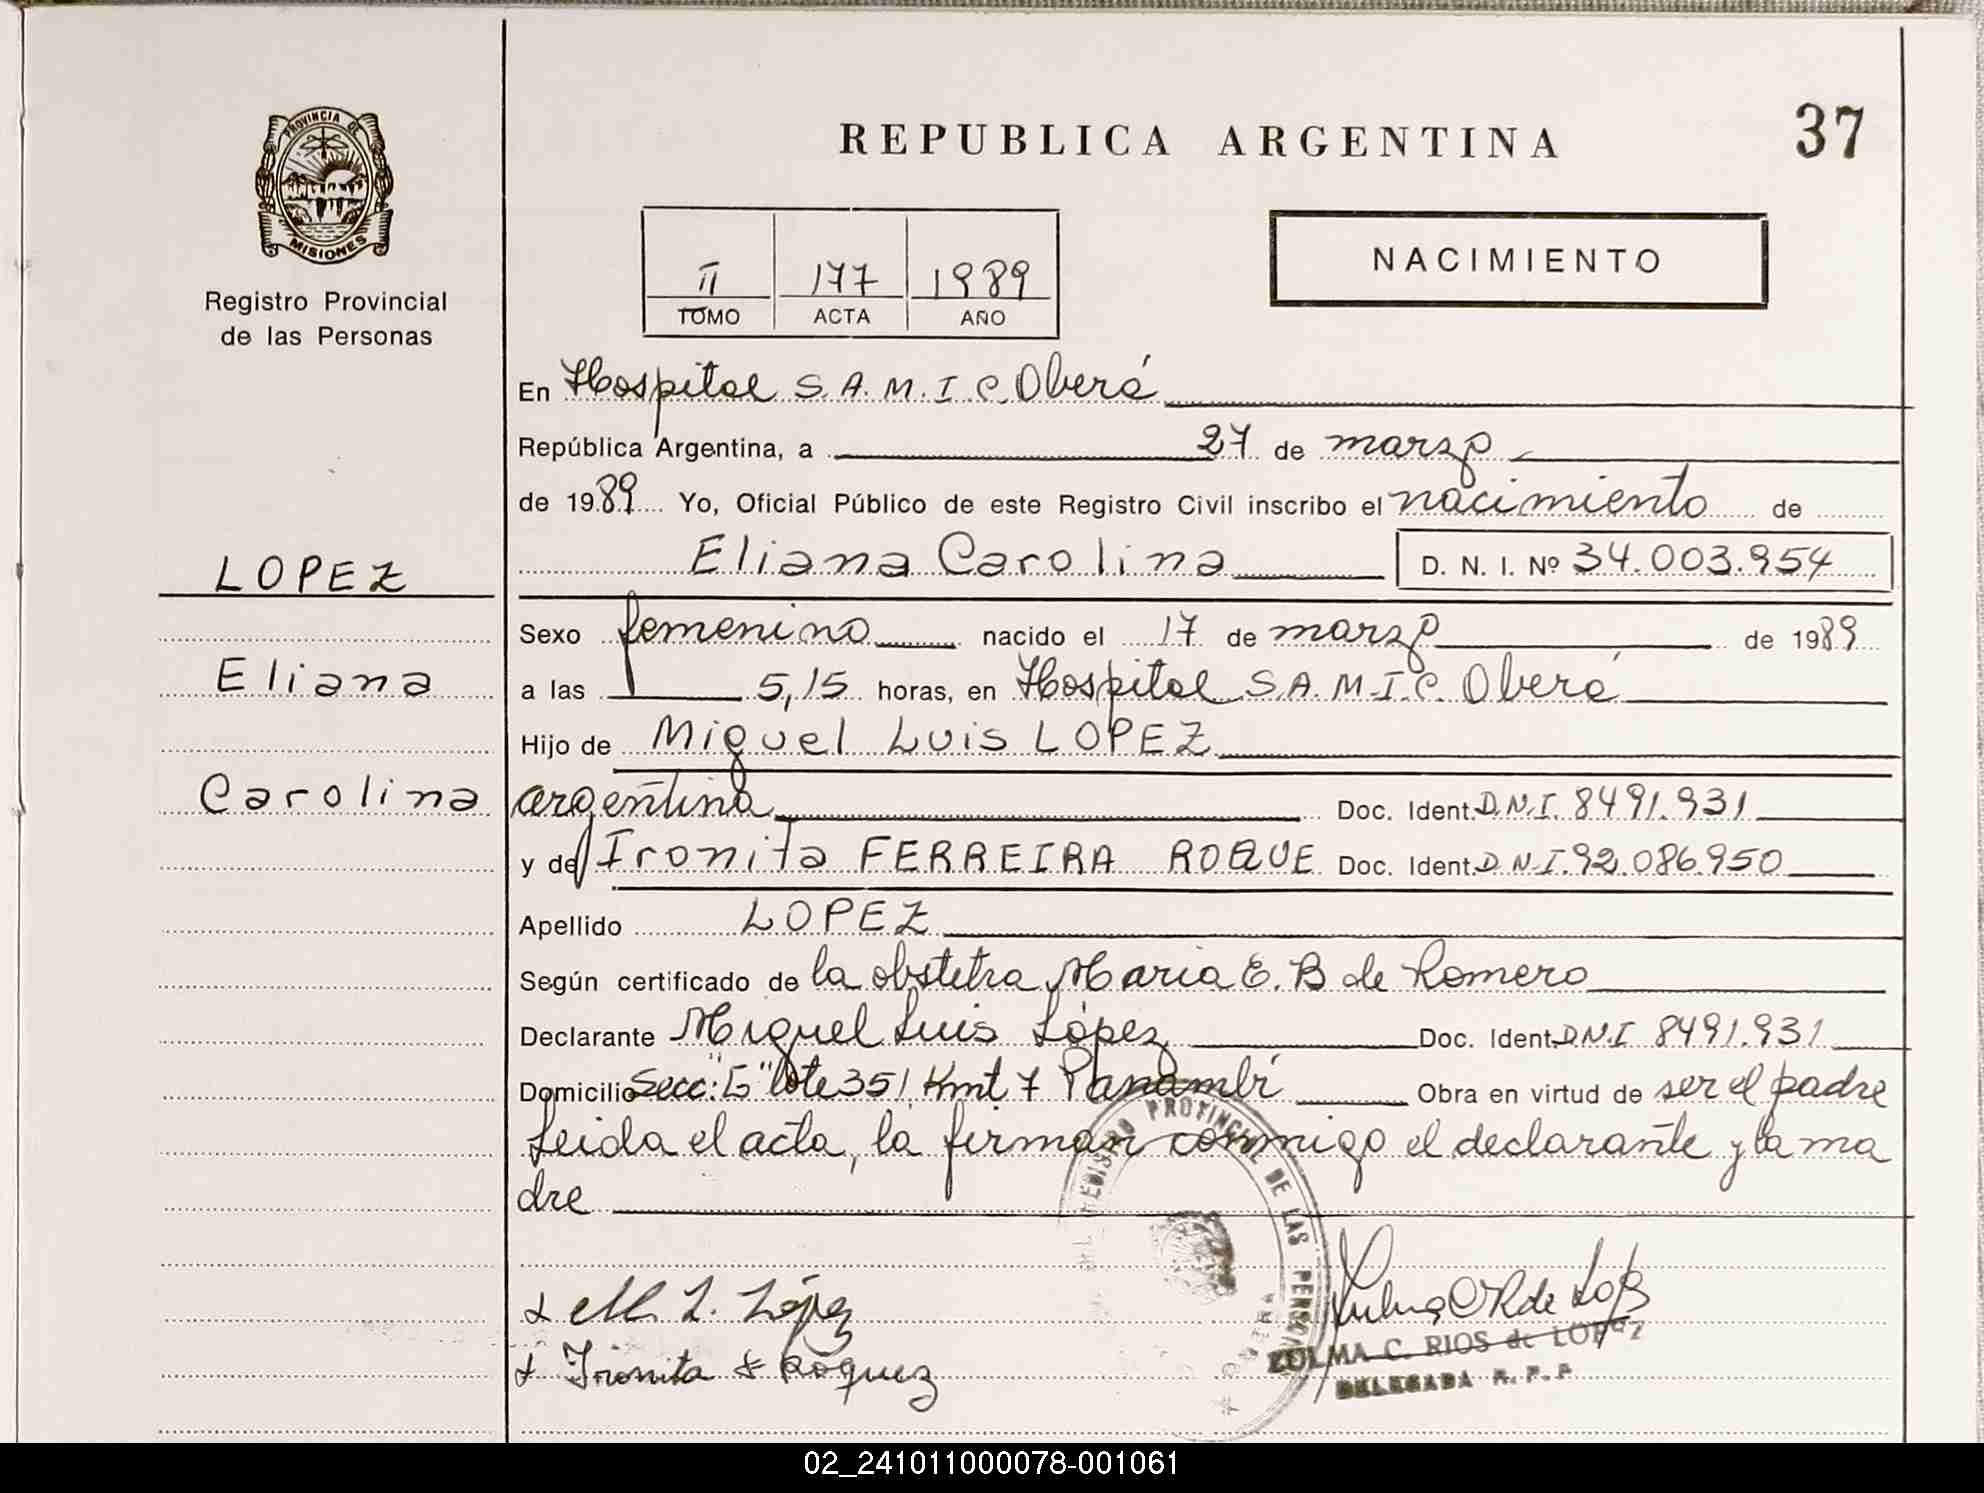 PROVINCIA DE
MISIONES
Registro Provincial
de las Personas
LOPEZ
Eliana
Carolina
REPUBLICA ARGENTINA
37
II 177 1989
TOMO ACTA AÑO
NACIMIENTO
En Hospital S.A.M.I.C. Oberá
República Argentina, a 27 de marzo
de 1989 Yo, Oficial Público de este Registro Civil inscribo el nacimiento de
Eliana Carolina D. N. I. Nº 34.003.954
Sexo femenino nacido el 17 de marzo de 1989
a las 5,15 horas, en Hospital S.A.M.I.C. Oberá
Hijo de Miguel Luis LOPEZ
argentina Doc. Ident. D.N.I. 8491.931
y de Ironita FERREIRA ROQUE Doc. Ident. D.N.I. 92.086.950
Apellido LOPEZ
Según certificado de la obstetra Maria E. B de Romero
Declarante Miguel Luis López Doc. Ident. D.N.I 8491.931
Domicilio Secc: "G" lote 351 Kmt 7 Panambí Obra en virtud de ser el padre
Leida el acta, la firman conmigo el declarante y la ma
dre
REGISTRO PROVINCIAL DE LAS PERSONAS
M. L. López
Ironita F Roquez
ZULMA C. RIOS de LOPEZ
DELEGADA R. P. P
02_241011000078-001061